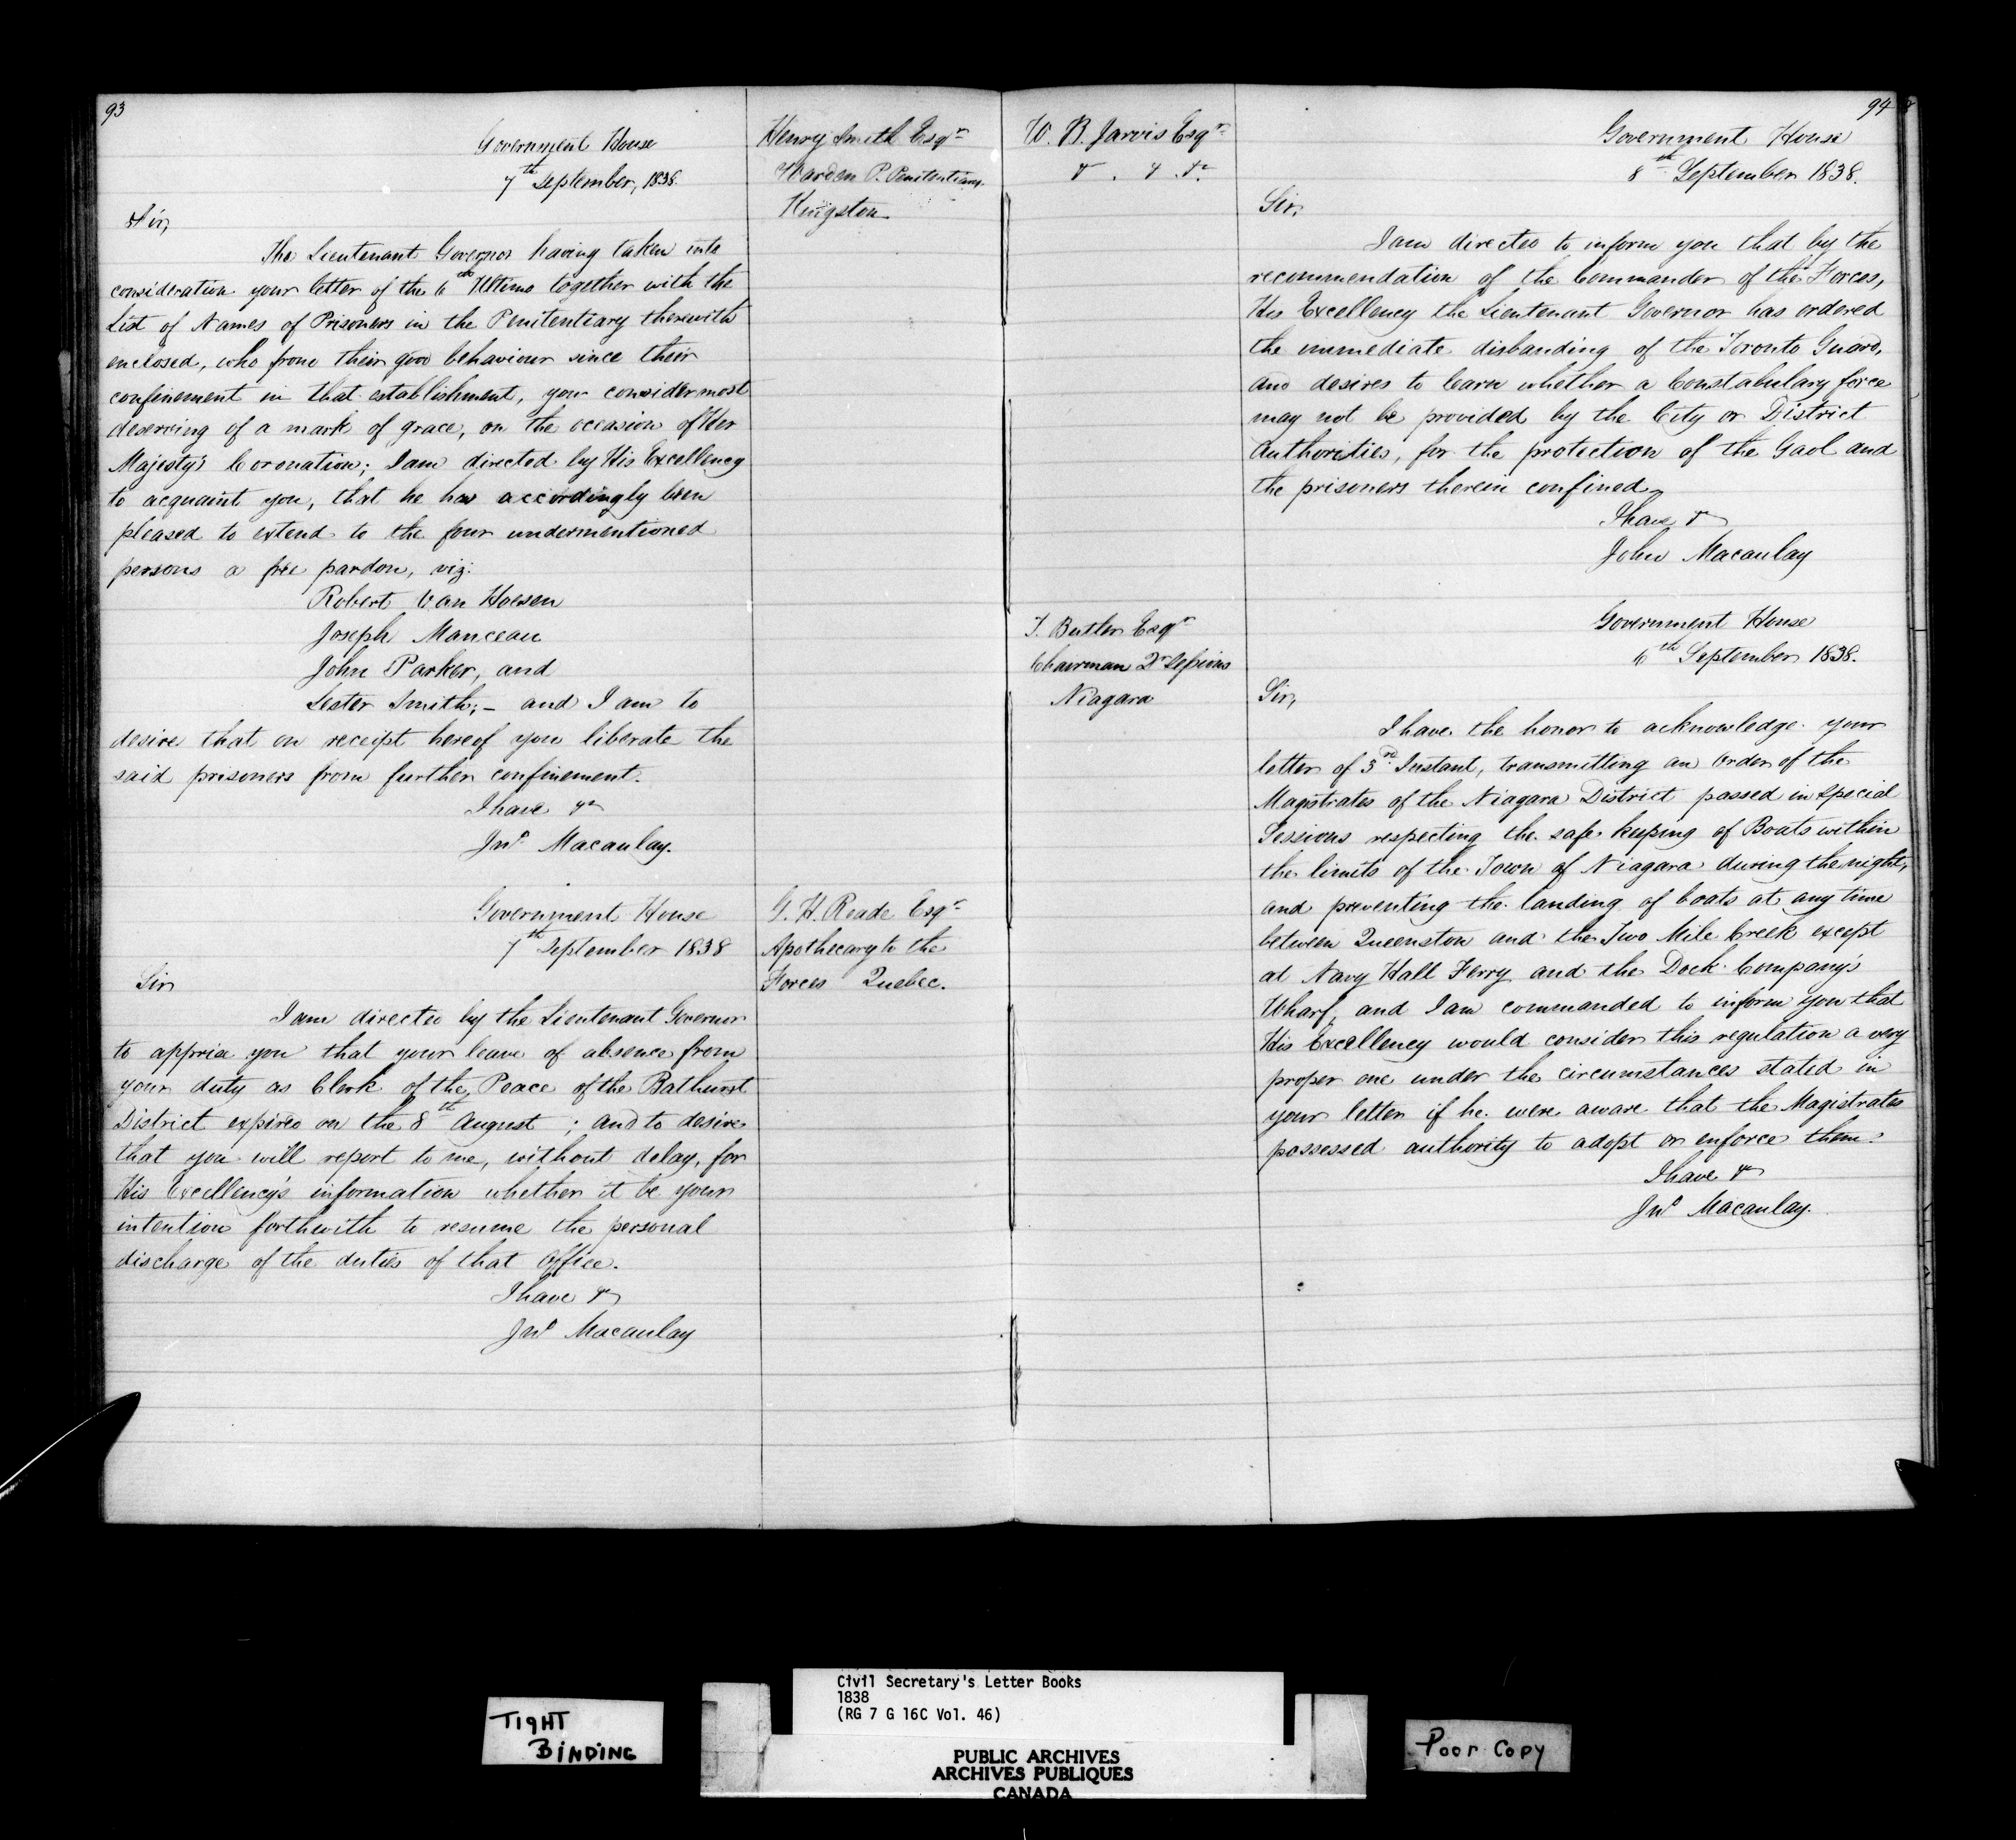 93
Government House
7th September, 1838.
Henry Smith Esqr
Warden P. Penitentiary
Kingston
Sir,
The Lieutenant Governor having taken into
consideration your letter of the 6th Ultimo together with the
List of Names of Prisoners in the Penitentiary therewith
enclosed, who from their good behaviour since their
confinement in that establishment, you consider most
deserving of a mark of grace, on the occasion of Her
Majesty's Coronation; I am directed by His Excellency
to acquaint you, that he has accordingly been
pleased to extend to the four undermentioned
persons a free pardon, viz:
Robert Van Hoesen
Joseph Manceau
John Parker, and
Lester Smith;- and I am to
desire that on receipt hereof you liberate the
said prisoners from further confinement.
I have &c
Jno Macaulay.
Government House
7th September 1838
G. H. Reade Esqr
Apothecary to the
Forces Quebec.
Sir
I am directed by the Lieutenant Governor
to apprise you that your leave of absence from
your duty as Clerk of the Peace of the Bathurst
District expired on the 8th August ; and to desire
that you will report to me, without delay, for
His Excellency's information whether it be your
intention forthwith to resume the personal
discharge of the duties of that Office.
I have &c
Jno Macaulay
94
W. B. Jarvis Esqr
& . & . &c
Government House
8th September 1838.
Sir,
I am directed to inform you that by the
recommendation of the Commander of the Forces,
His Excellency the Lieutenant Governor has ordered
the immediate disbanding of the Toronto Guard,
and desires to learn whether a Constabulary force
may not be provided by the City or District
Authorities, for the protection of the Gaol and
the prisoners therein confined.
I have &c
John Macaulay
T. Butler Esqr
Chairman Qr Sessions
Niagara
Government House
6th September 1838.
Sir,
I have the honor to acknowledge your
letter of 3rd Instant, transmitting an Order of the
Magistrates of the Niagara District passed in Special
Sessions respecting the safe keeping of Boats within
the limits of the Town of Niagara during the night,
and preventing the landing of boats at any time
between Queenston and the Two Mile Creek except
at Navy Hall Ferry and the Dock Company's
Wharf, and I am commanded to inform you that
His Excellency would consider this regulation a very
proper one under the circumstances stated in
your letter if he were aware that the Magistrates
possessed authority to adopt or enforce them.
I have &c
Jno Macaulay.
TIGHT
BINDING
Civil Secretary's Letter Books
1838
(RG 7 G 16C Vol. 46)
PUBLIC ARCHIVES
ARCHIVES PUBLIQUES
CANADA
Poor Copy